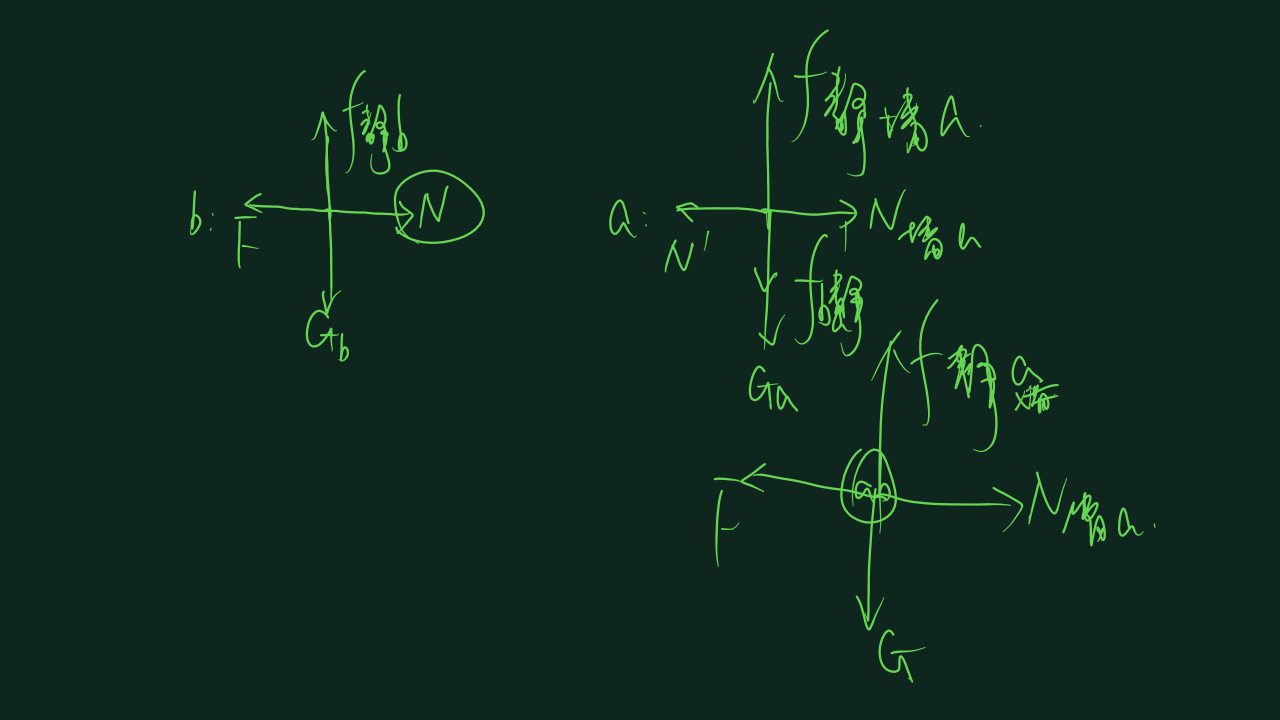 f静b
b:
F
N
Gb
f静墙a.
a:
N'
N墙a
fb静
Ga
f静a墙
F
ab
N墙a.
G